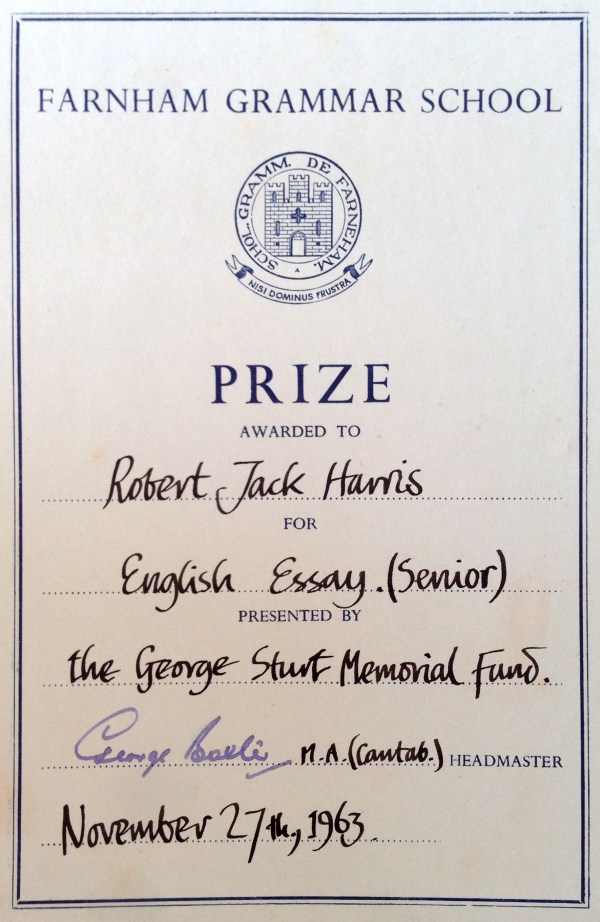 FARNHAM GRAMMAR SCHOOL
SCHOL. GRAMM. DE FARNEHAM.
NISI DOMINUS FRUSTRA
PRIZE
AWARDED TO
Robert Jack Harris
FOR
English Essay. (Senior)
PRESENTED BY
the George Sturt Memorial Fund.
George M.A. (Cantab.) HEADMASTER
November 27th., 1963.